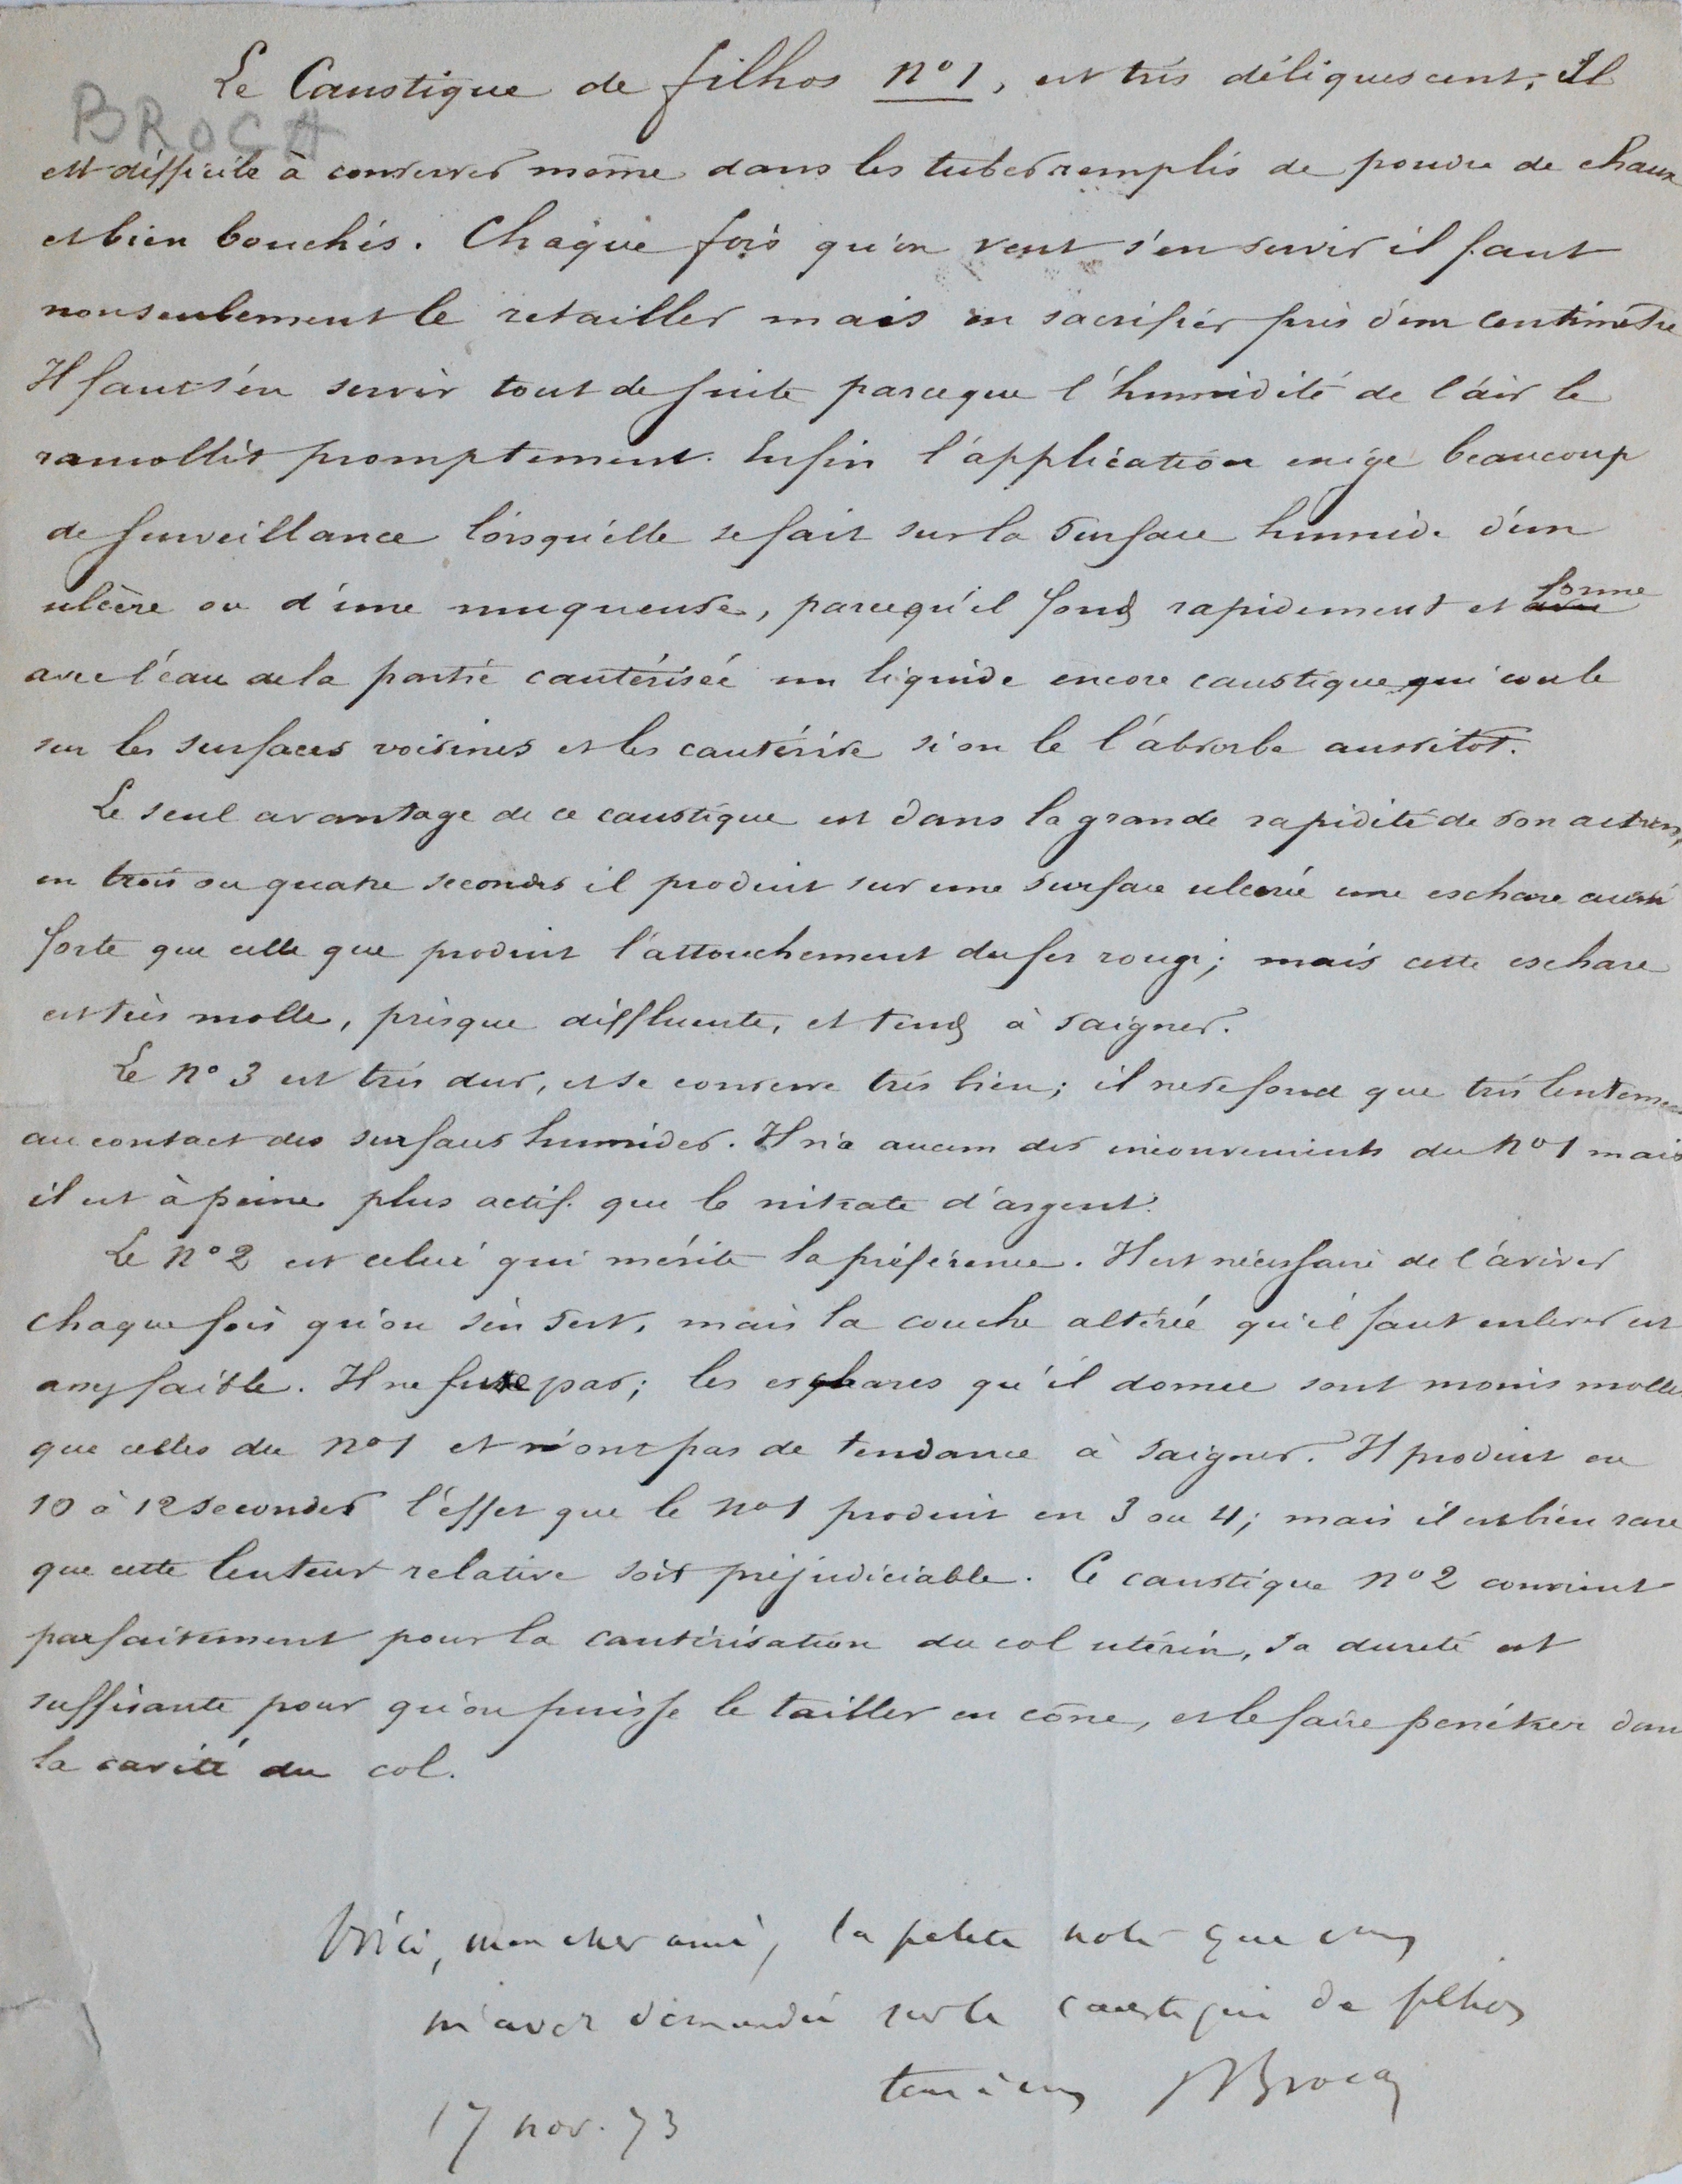 Le Caustique de filhos n° 1, est très déliquescent; Il
BROCA
est difficile à conserver même dans les tubes remplis de poudre de chaux
et bien bouchés. Chaque fois qu'on veut s'en servir il faut
non seulement le retailler mais en sacrifier près d'un centimètre
Il faut s'en servir tout de suite parceque l'humidité de l'air le
ramollit promptement. Enfin l'application exige beaucoup
de surveillance lorsqu'elle se fait sur la surface humide d'un
ulcère ou d'une muqueuse, parcequ'il fond rapidement et avec forme
avec l'eau de la partie cautérisée un liquide encore caustique qui coule
sur les surfaces voisines et les cautérise si on le l'absorbe aussitot.
Le seul avantage de ce caustique est dans la grande rapidité de son action,
en trois ou quatre secondes il produit sur une surface ulcérée une eschare aussi
forte que celle que produit l'attouchement du fer rougi; mais cette eschare
est très molle, presque diffluente, et tend à saigner.
Le n° 3 est très dur, et se conserve très bien; il ne se fond que très lentement
au contact des surfaces humides. Il n'a aucun des inconvenients du n° 1 mais
il est à peine plus actif que le nitrate d'argent.
Le n° 2 est celui qui mérite la préférence. Il est nécessaire de l'aviver
chaque fois qu'on s'en sert, mais la couche altérée qu'il faut enlever est
assez faible. Il ne fuse pas; les eschares qu'il donne sont moins molles
que celles du n° 1 et n'ont pas de tendance à saigner. Il produit en
10 à 12 secondes l'effet que le n° 1 produit en 3 ou 4; mais il est bien rare
que cette lenteur relative soit préjudiciable. Ce caustique n° 2 convient
parfaitement pour la cautérisation du col utérin, sa dureté est
suffisante pour qu'on puisse le tailler en cône, et le faire pénétrer dans
la cavité du col.
Voici, mon cher ami, la petite note que vous
m'avez demandée sur le caustique de filhos
tout à vous PBroca
17 nov. 73